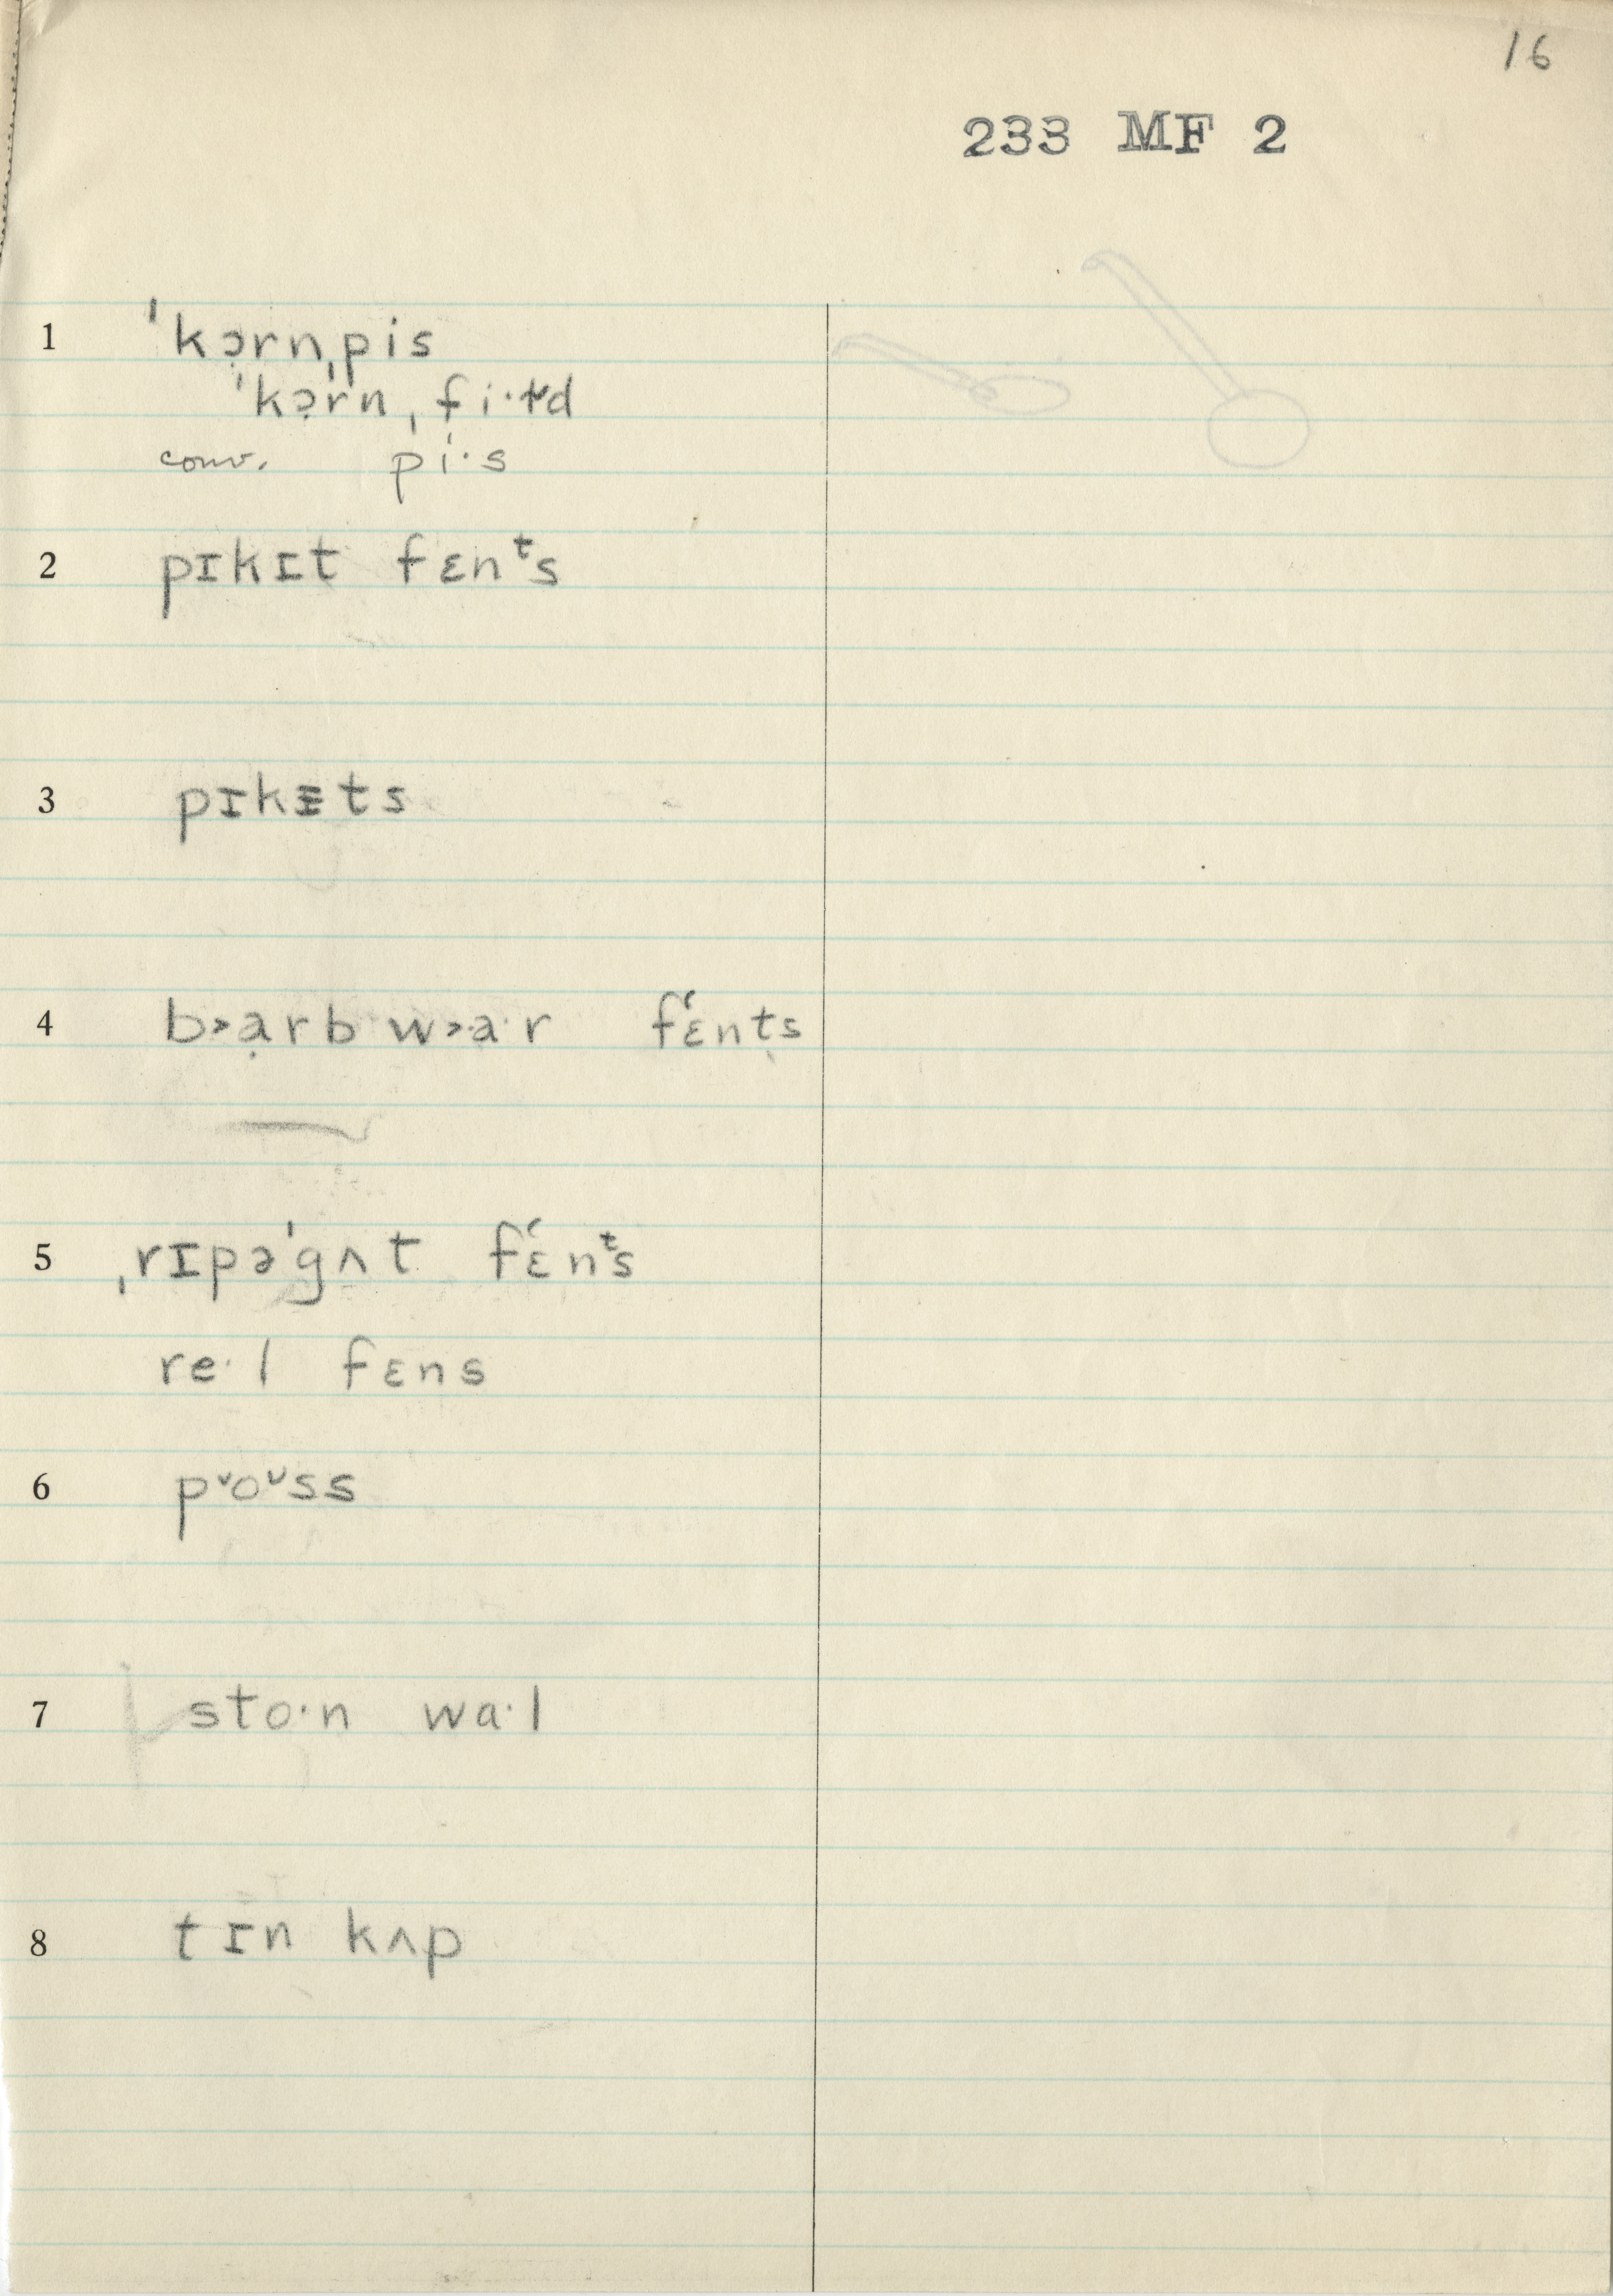 16
233 MF 2
1 ˈkɔ̣rnˌpis
ˈkɔ̣rnˌfi·ɫd
conv. ˈpi·s
2 pɪkɪt fɛnᵗs
3 pɪkɪts
4 b˃ạrb w˃a·r fɛ́nt̬s
5 ˌrɪpəˈgʌt fɛ́nᵗs
re·l fɛns
6 p˅o˅ss
7 sto·n wa·l
8 tɪn kʌp